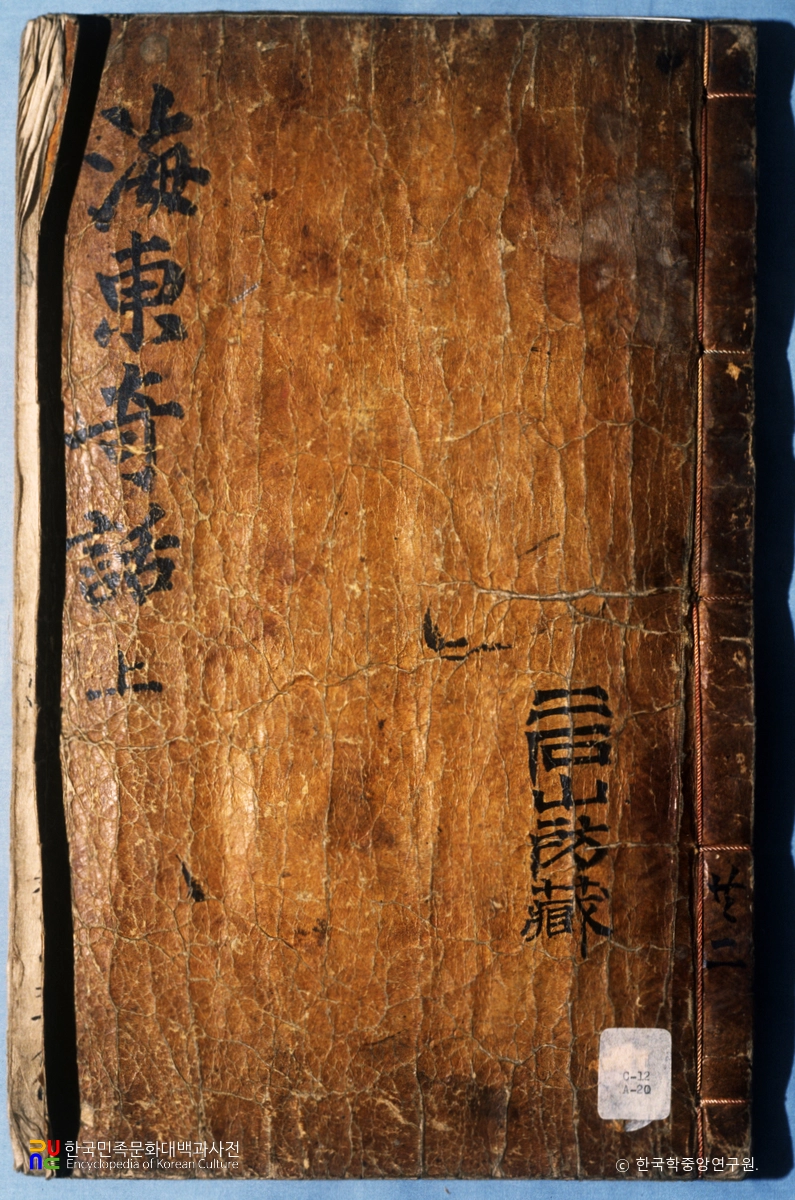 海東奇話 上
二石山房藏
共二
C-12
A-20
한국민족문화대백과사전
Encyclopedia of Korean Culture
© 한국학중앙연구원.